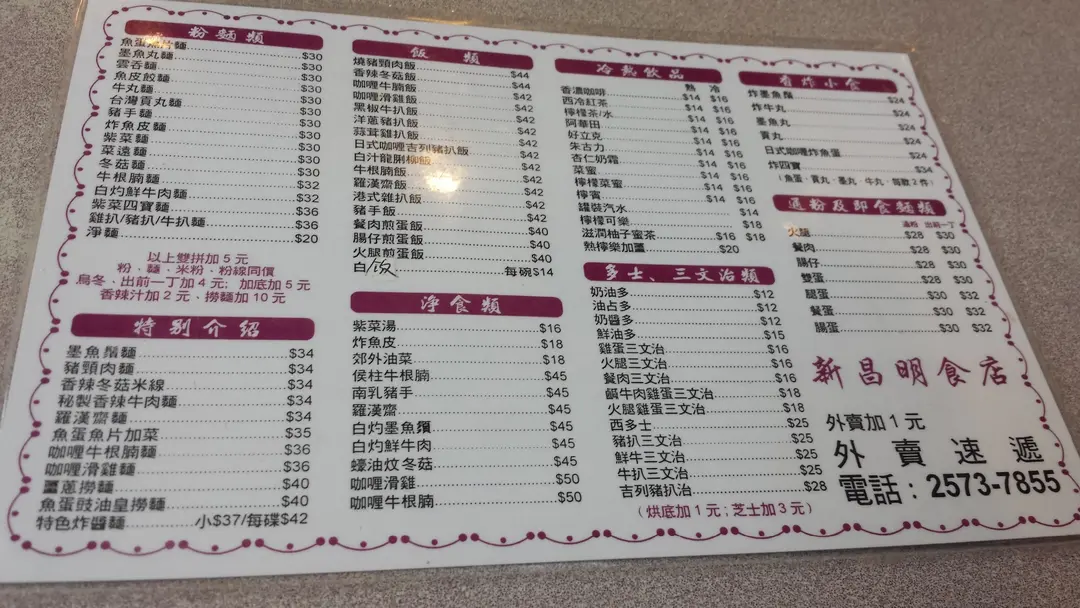 粉麵類
魚蛋魚片麵 $30
墨魚丸麵 $30
雲吞麵 $30
魚皮餃麵 $30
牛丸麵 $30
台灣貢丸麵 $30
豬手麵 $30
炸魚皮麵 $30
紫菜麵 $30
菜遠麵 $30
冬菇麵 $30
牛根腩麵 $32
白灼鮮牛肉麵 $32
紫菜四寶麵 $36
雞扒/豬扒/牛扒麵 $36
淨麵 $20
以上雙拼加 5 元
粉．麵．米粉．粉線同價
烏冬、出前一丁加 4 元; 加底加 5 元
香辣汁加 2 元．撈麵加 10 元
特别介紹
墨魚鬚麵 $34
豬頸肉麵 $34
香辣冬菇米線 $34
秘製香辣牛肉麵 $34
羅漢齋麵 $34
魚蛋魚片加菜 $35
咖喱牛根腩麵 $36
咖喱滑雞麵 $36
薑蔥撈麵 $40
魚蛋豉油皇撈麵 $40
特色炸醬麵 小$37/每碟$42
飯類
燒豬頸肉飯 $44
香辣冬菇飯 $44
咖喱牛腩飯 $42
咖喱滑雞飯 $42
黑椒牛扒飯 $42
洋蔥豬扒飯 $42
蒜茸雞扒飯 $42
日式咖喱吉列豬扒飯 $42
白汁龍脷柳飯 $42
牛根腩飯 $42
羅漢齋飯 $42
港式雜扒飯 $42
豬手飯 $42
餐肉煎蛋飯 $40
腸仔煎蛋飯 $40
火腿煎蛋飯 $40
白飯 每碗$14
淨食類
紫菜湯 $16
炸魚皮 $18
郊外油菜 $18
侯柱牛根腩 $45
南乳豬手 $45
羅漢齋 $45
白灼墨魚鬚 $45
白灼鮮牛肉 $45
蠔油炆冬菇 $45
咖喱滑雞 $50
咖喱牛根腩 $50
冷熱飲品
熱 冷
香濃咖啡 $14 $16
西冷紅茶 $14 $16
檸檬茶/水 $14 $16
阿華田 $14 $16
好立克 $14 $16
朱古力 $14 $16
杏仁奶霜 $14 $16
菜蜜 $14 $16
檸檬菜蜜 $14 $16
檸賓 $14 $16
罐裝汽水 $14
檸檬可樂 $18
滋潤柚子蜜茶 $16 $18
熱檸樂加薑 $20
多士、三文治類
奶油多 $12
油占多 $12
奶醬多 $12
鮮油多 $15
雞蛋三文治 $16
火腿三文治 $16
餐肉三文治 $16
鹹牛肉雞蛋三文治 $18
火腿雞蛋三文治 $18
西多士 $25
豬扒三文治 $25
鮮牛三文治 $25
牛扒三文治 $25
吉列豬扒治 $28
（烘底加 1 元 ; 芝士加 3 元）
香炸小食
炸墨魚鬚 $24
炸牛丸 $24
墨魚丸 $24
貢丸
日式咖喱炸魚蛋 $24
炸四寶 $34
（魚蛋．貢丸．墨丸．牛丸．每款 2 件）
通粉及即食麵類
通粉 出前一丁
火腿 $28 $30
餐肉 $28 $30
腸仔 $28 $30
雙蛋 $28 $30
腿蛋 $30 $32
餐蛋 $30 $32
腸蛋 $30 $32
新昌明食店
外賣加 1 元
外賣速遞
電話 : 2573-7855